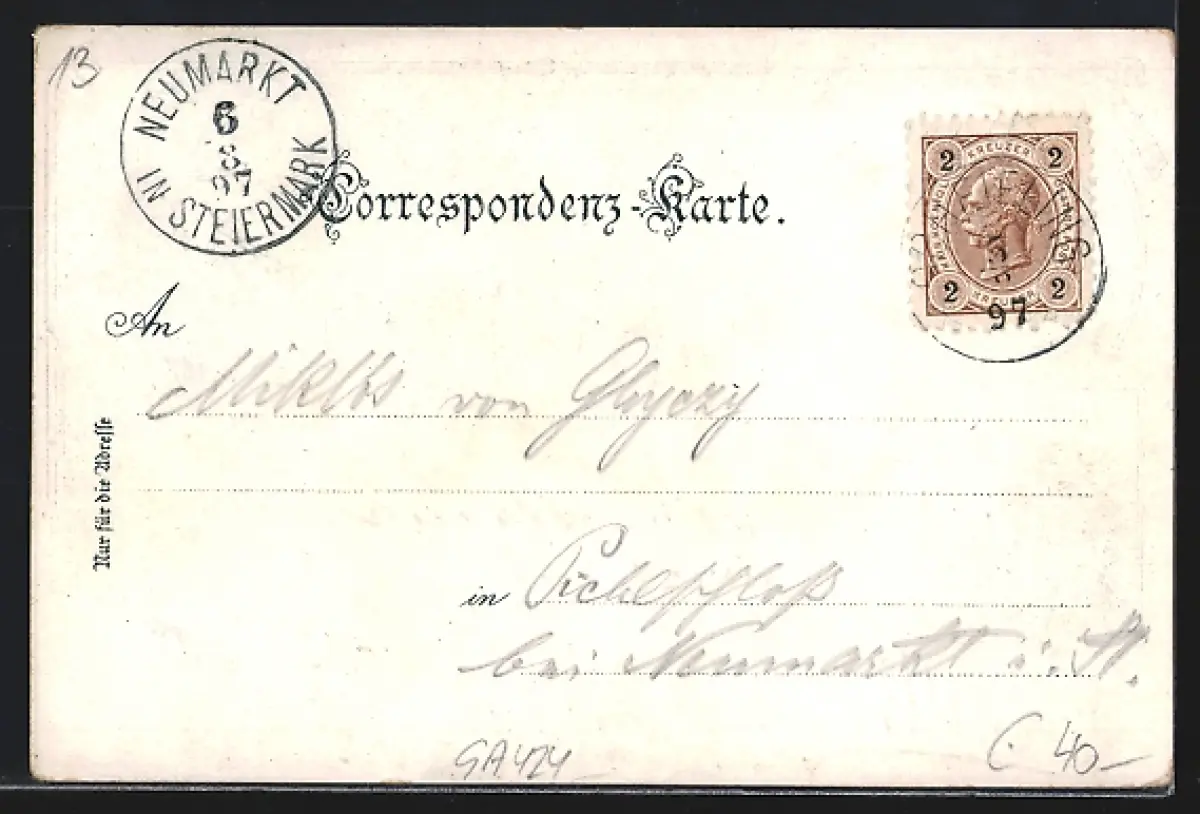 13
NEUMARKT
IN STEIERMARK
6
8
97
Correspondenz-Karte.
2 KREUZER 2
2 KREUZER 2
97
An
Miklós von
Nur für die Adresse
in Pichlschloß
bei Neumarkt i. St.
GA424
40-